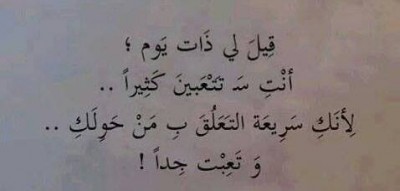 قِيلَ لي ذَات يَوم ؛
أنْتِ سَ تتَعْبينَ كَثِيراً ..
لِأنَكِ سَرِيعَة التَعَلُقَ بِ مَنْ حَولَكِ ..
وَ تَعِبْت جِداً !